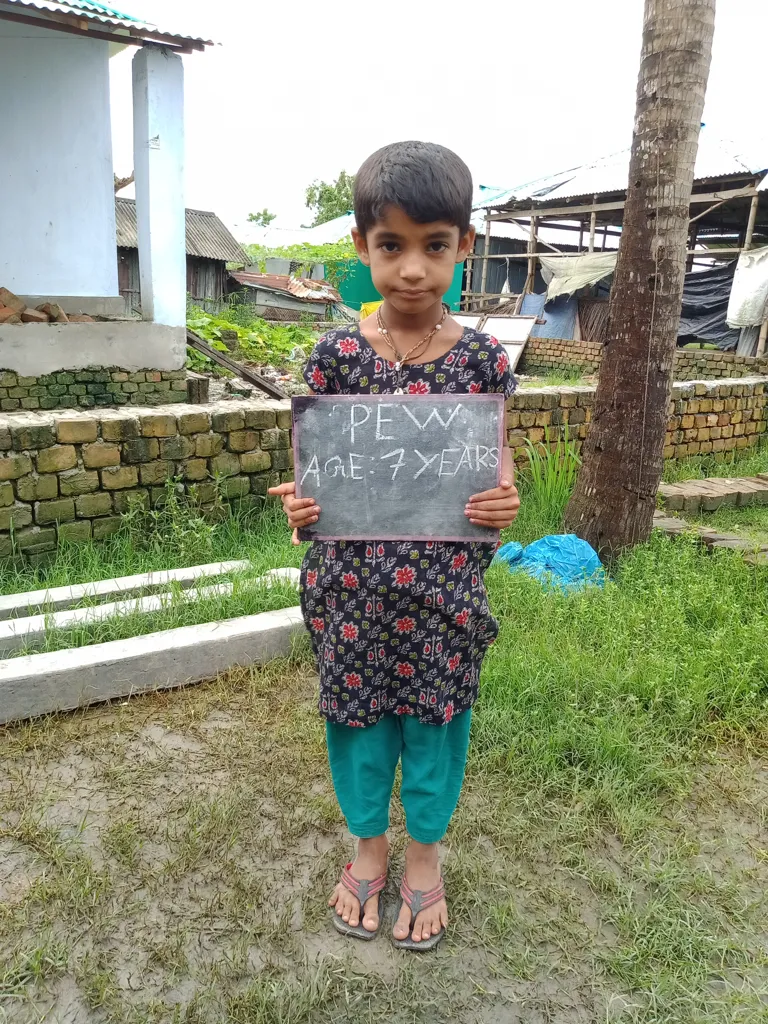 PEW
AGE: 7 YEARS